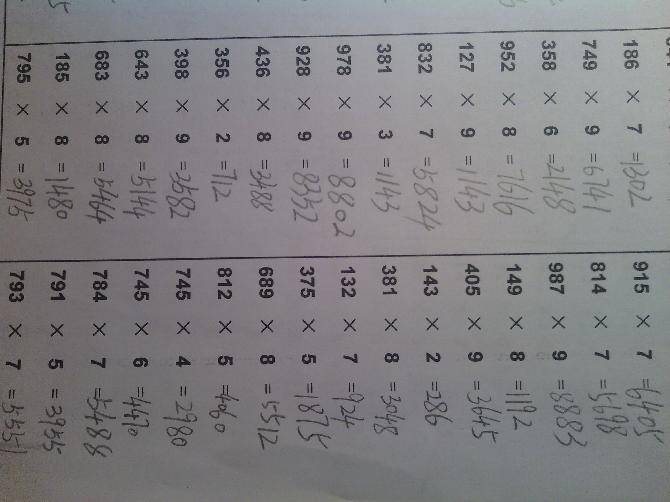 186 × 7 =1302 915 × 7 =6405
749 × 9 =6741 814 × 7 =5698
358 × 6 =2148 987 × 9 =8883
952 × 8 =7616 149 × 8 =1192
127 × 9 =1143 405 × 9 =3645
832 × 7 =5824 143 × 2 =286
381 × 3 =1143 381 × 8 =3048
978 × 9 =8802 132 × 7 =924
928 × 9 =8352 375 × 5 =1875
436 × 8 =3488 689 × 8 =5512
356 × 2 =712 812 × 5 =4060
398 × 9 =3582 745 × 4 =2980
643 × 8 =5144 745 × 6 =4470
683 × 8 =5464 784 × 7 =5488
185 × 8 =1480 791 × 5 =3955
795 × 5 =3975 793 × 7 =5551